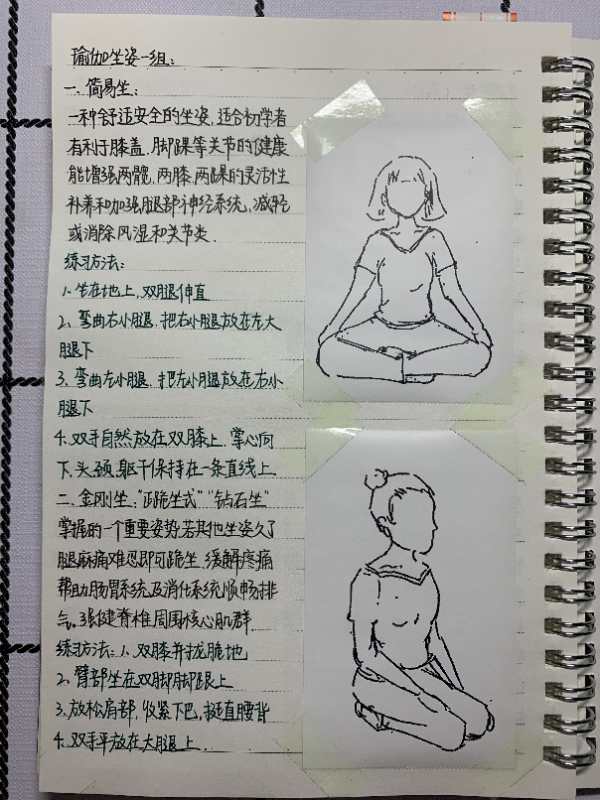 瑜伽坐姿一组:
一、简易坐:
一种舒适安全的坐姿,适合初学者
有利于膝盖、脚踝等关节的健康
能增强两髋,两膝,两踝的灵活性
补养和加强腿部神经系统,减轻
或消除风湿和关节类.
练习方法:
1、坐在地上,双腿伸直
2、弯曲右小腿,把右小腿放在左大
腿下
3、弯曲左小腿,把左小腿放在右小
腿下
4、双手自然放在双膝上,掌心向
下,头、颈、躯干保持在一条直线上
二、金刚坐:"正跪坐式""钻石坐"
掌握的一个重要姿势若其他坐姿久了
腿麻痛难忍即可跪坐,缓解疼痛
帮助肠胃系统及消化系统顺畅排
气,强健脊椎周围核心肌群
练习方法:1、双膝并拢跪地
2、臀部坐在双脚脚跟上
3、放松肩部,收紧下巴,挺直腰背
4、双手平放在大腿上.